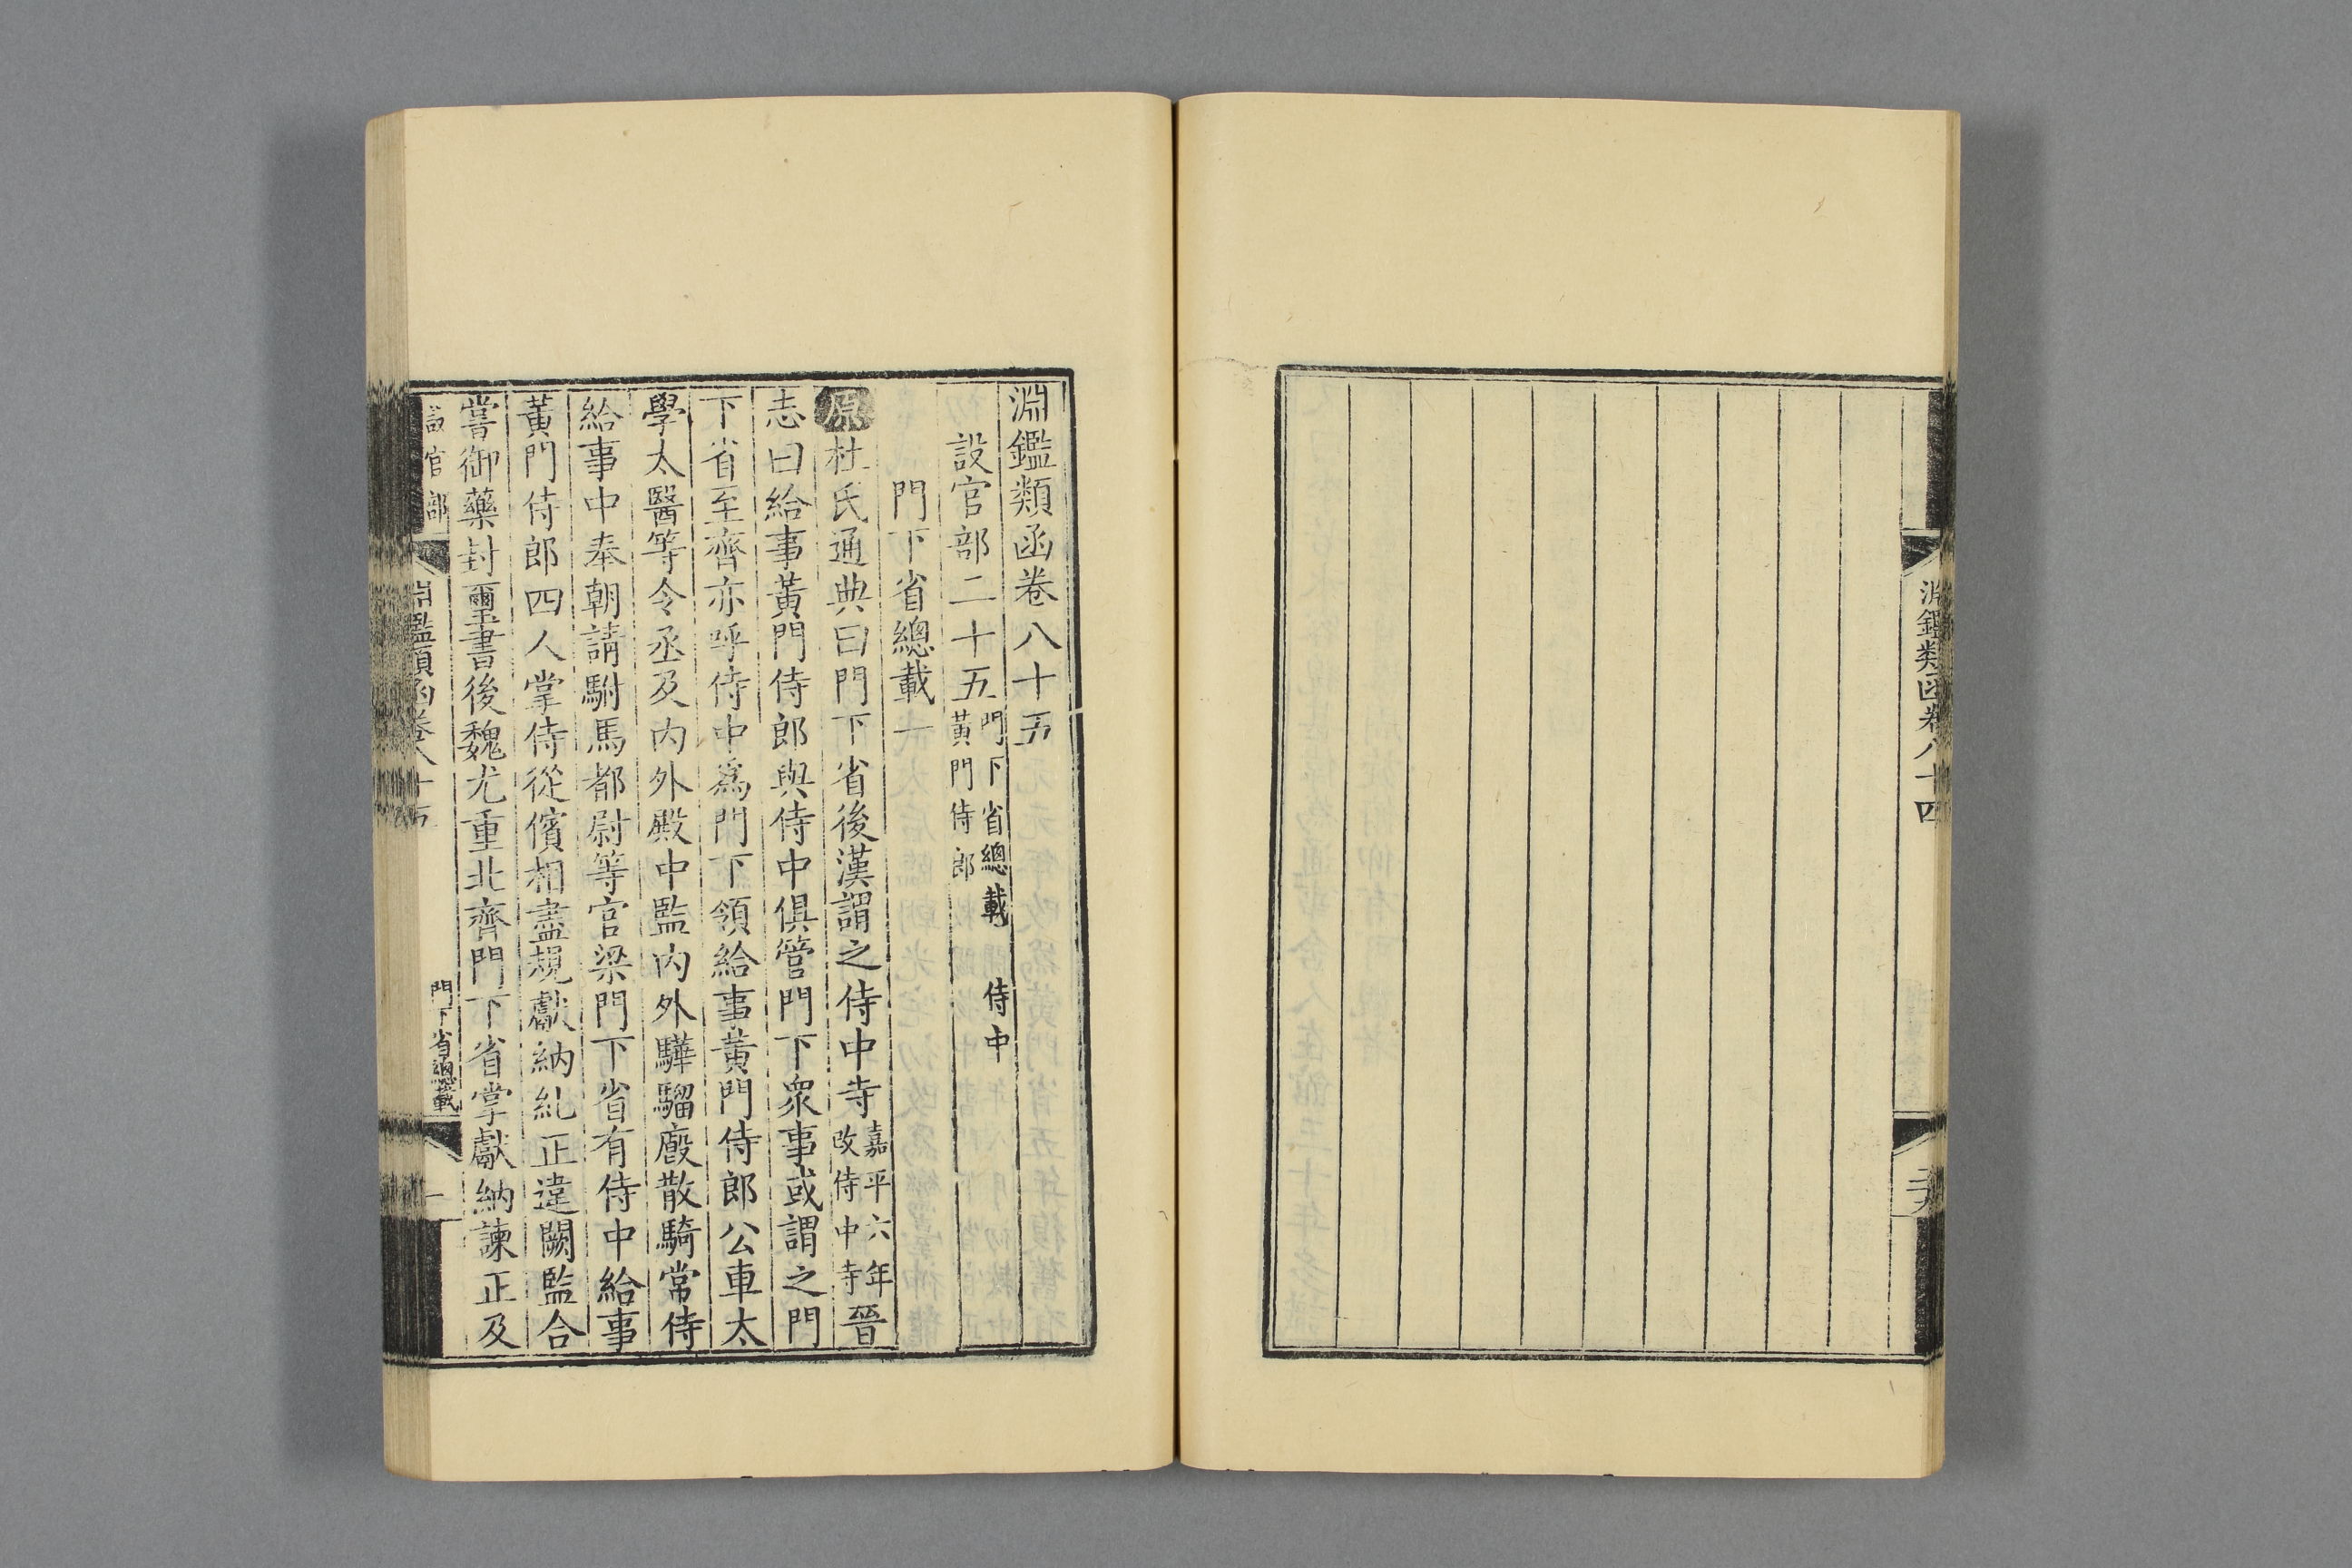 淵鑑類函卷八十四
淵鑑類函卷八十五
設官部二十五門下省總載 侍中
黃門侍郎
門下省總載一
原杜氏通典曰門下省後漢謂之侍中寺嘉平六年改侍中寺晉
志曰給事黃門侍郎與侍中俱管門下衆事或謂之門
下省至齊亦呼侍中爲門下領給事黃門侍郎公車太
學太醫等令丞及內外殿中監內外驊騮廄散騎常侍
給事中奉朝請駙馬都尉等官梁門下省有侍中給事
黃門侍郎四人掌侍從儐相盡規獻納糺正違闕監合
嘗御藥封璽書後魏尤重北齊門下省掌獻納諫正及
設官部
淵鑑類函卷八十五
門下省總載
一